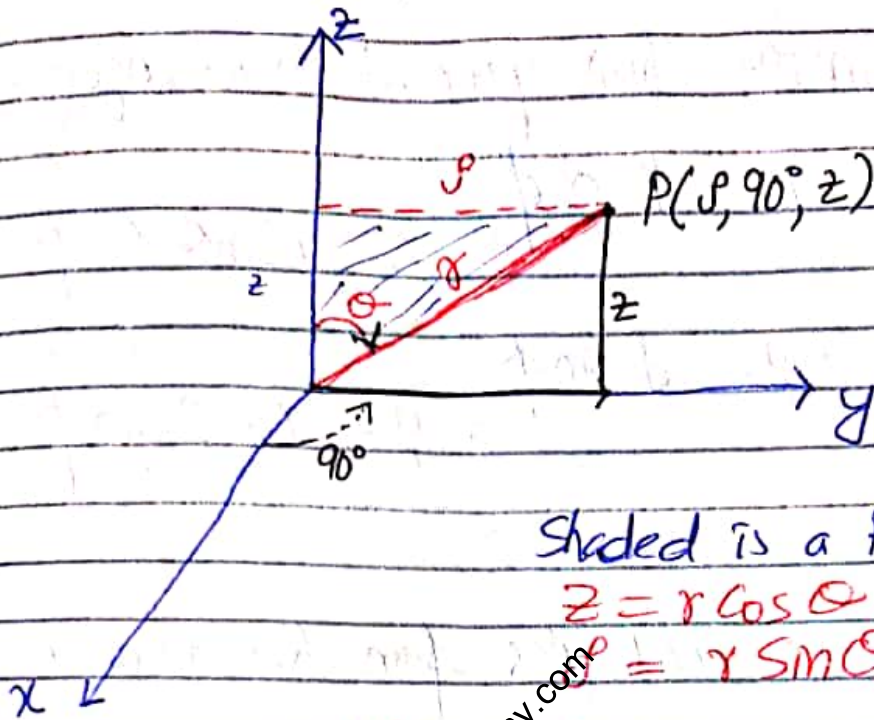 z
ρ
P(ρ, 90°, z)
z
θ
r
z
y
90°
Shaded is a
z = r cos θ
ρ = r Sin θ
x
.com